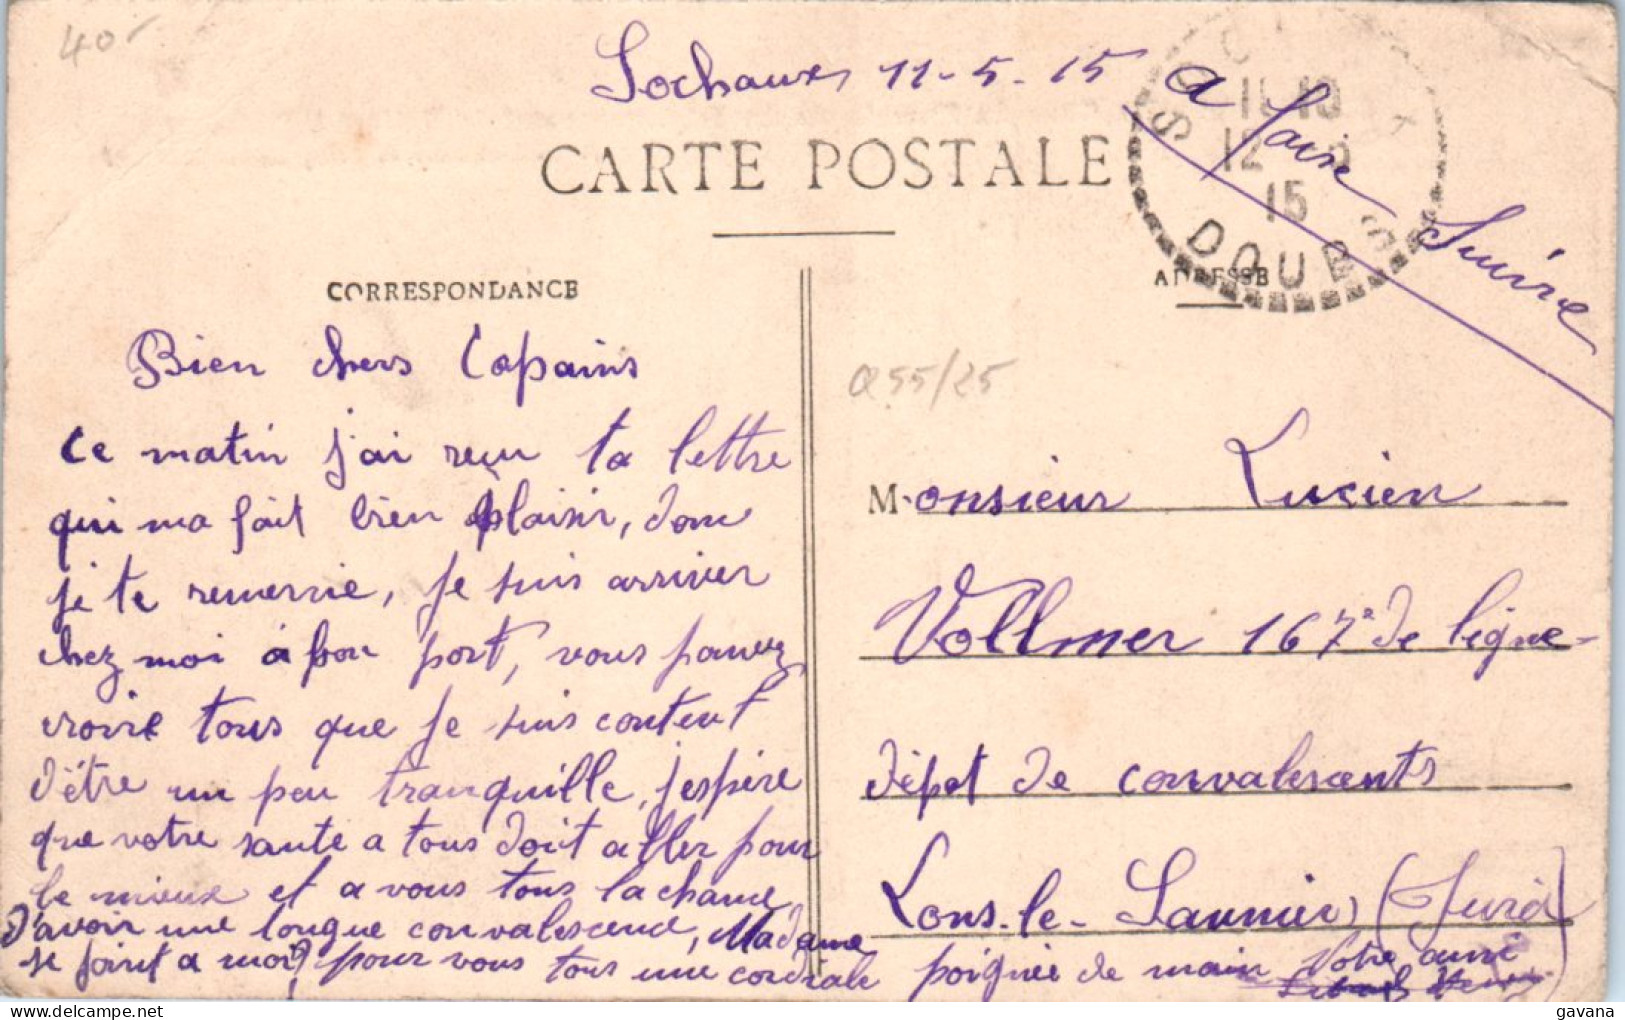 40
Sochaux 11-5-15
a Faire Suivre
SOCHAUX
11-10
12 - 5
15
DOUBS
CARTE POSTALE
CORRESPONDANCE
ADRESSE
Bien chers Copains
Ce matin j'ai reçu ta lettre
qui ma fait bien plaisir, donc
je te remercie, je suis arriver
chez moi à bon port, vous pouvez
croire tous que je suis content
d'être un peu tranquille, j'espère
que votre sante a tous doit aller pour
le mieux et a vous tous la chance
d'avoir une longue convalescence, Madame
se joint a moi pour vous tous une cordiale poignée de main Votre ami
Q55/25
Monsieur Lucien
Vollmer 167e de ligne
dépot de convalescents
Lons-le-Saunier (Jura)
gavana